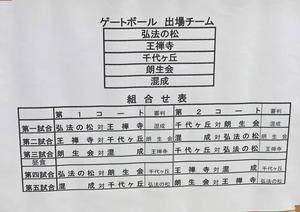 ゲートボール 出場チーム
弘法の松
王禅寺
千代ヶ丘
朗生会
混成
組合せ表
第1コート 審判 第2コート 審判
第一試合 弘法の松 対 王禅寺 混成 千代ヶ丘 対 朗生会 混成
第二試合 王禅寺 対 千代ヶ丘 朗生会 混成 対 弘法の松 朗生会
第三試合 朗生会 対 混成 王禅寺 千代ヶ丘 対 弘法の松 王禅寺
昼食
第四試合 弘法の松 対 朗生会 千代ヶ丘 王禅寺 対 混成 千代ヶ丘
第五試合 混成 対 千代ヶ丘 弘法の松 朗生会 対 王禅寺 弘法の松